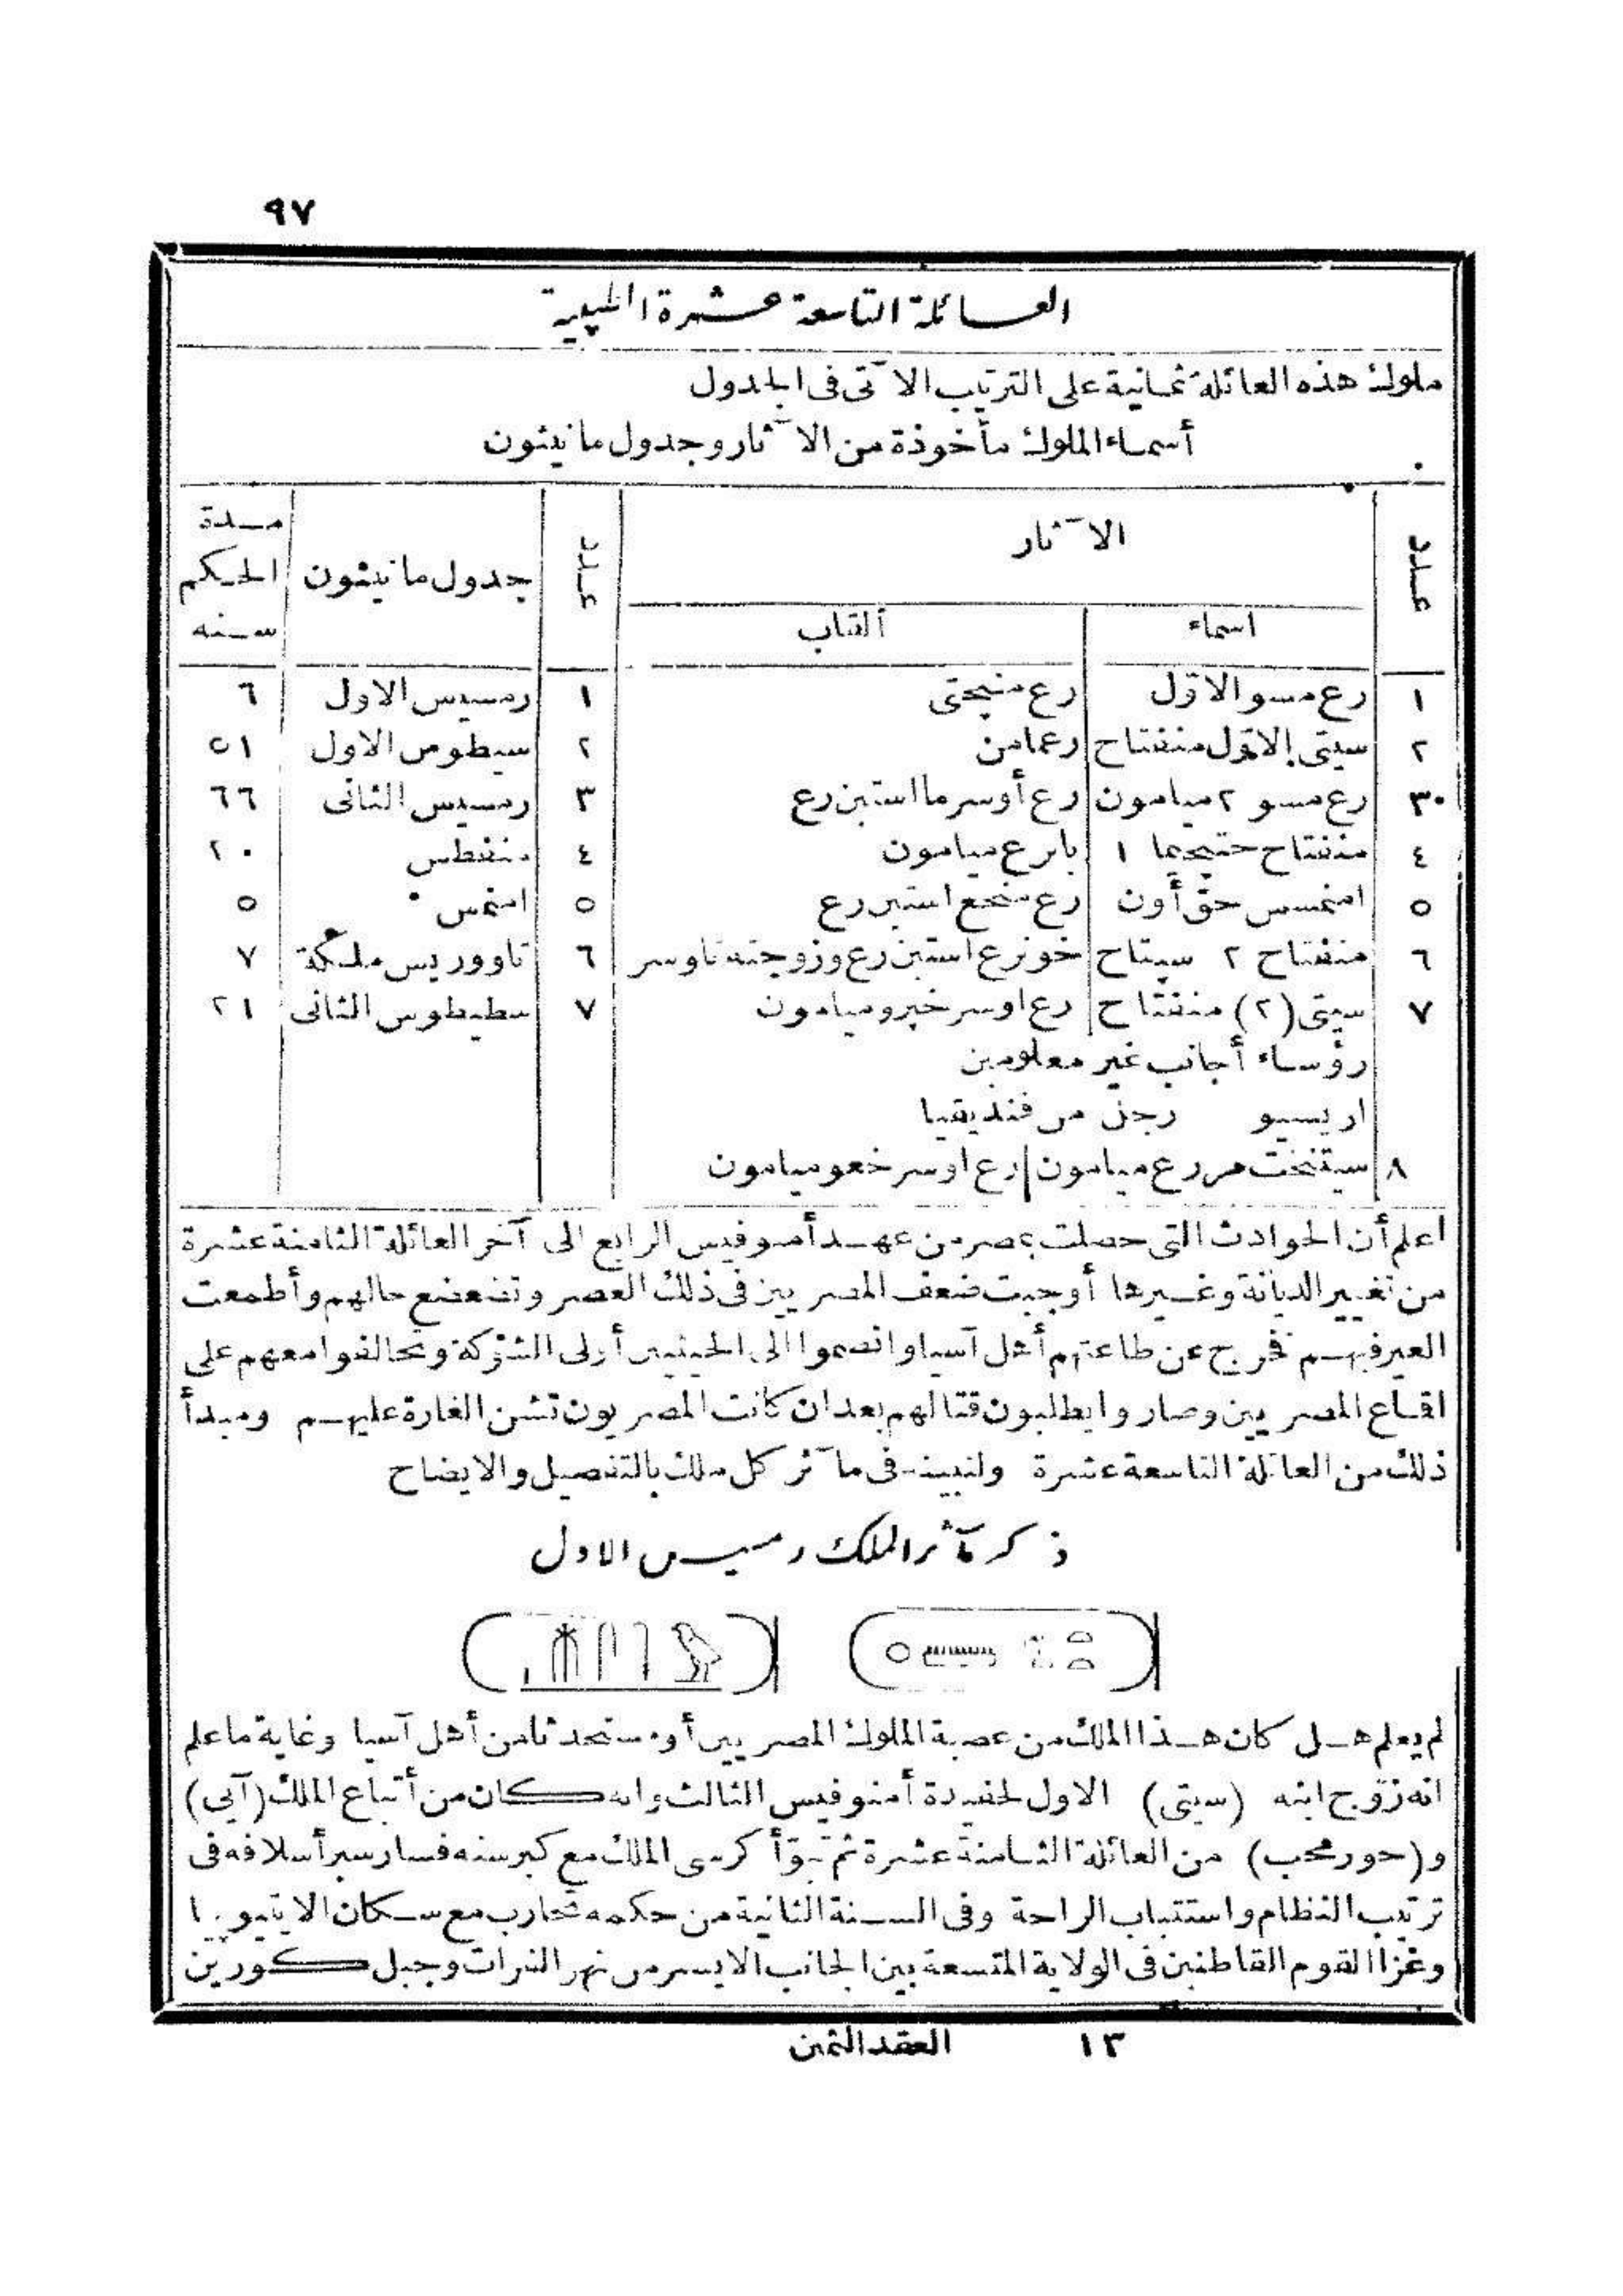 ٩٧
العائلة التاسعة عشرة الطيبية
ملوك هذه العائلة ثمانية على الترتيب الآتى فى الجدول
أسماء الملوك مأخوذة من الآثار وجدول مانيثون
عدد الآثار عدد جدول مانيثون مدة الحكم سنه
اسماء ألقاب
١ رع مسو الاوّل رع منپحتى ١ رمسيس الاول ٦
٢ سيتى الاوّل منفتاح رعمامن ٢ سيطوس الاول ٥١
٣ رع مسو ٢ ميامون رع أوسرما استبن رع ٣ رمسيس الثانى ٦٦
٤ منفتاح حتپحيما ١ بابن رع ميامون ٤ منفطس ٢٠
٥ امنمسس حق أون رع منخع استبن رع ٥ امنمس ٥
٦ منفتاح ٢ سيتاح خونرع استبن رع وزوجته تاوسر ٦ تاووريس ملكة ٧
٧ سيتى (٢) منفتاح رع اوسر خپرو ميامون ٧ سطيطوس الثانى ٢١
رؤساء أجانب غير معلومين
اريسيو رجل من فنديقيا
٨ سيتنخت مررع ميامون رع اوسر خعو ميامون
اعلم أن الحوادث التى حصلت بمصر من عهد أمنوفيس الرابع الى آخر العائلة الثامنة عشرة
من تغيير الديانة وغيرها أوجبت ضعف المصريين فى ذلك العصر وتضعضع حالهم وأطمعت
الغير فيهم فخرج عن طاعتهم أهل آسيا وانضموا الى الحيثيين أولى الشوكة وتحالفوا معهم على
اقماع المصريين وصاروا يطلبون قتالهم بعد ان كانت المصريون تشن الغارة عليهم ومبدأ
ذلك من العائلة التاسعة عشرة ولنبينه فى مآثر كل ملك بالتفصيل والايضاح
ذكر مآثر الملك رمسيس الاول
لم يعلم هل كان هذا الملك من عصبة الملوك المصريين أو مستحدثا من أهل آسيا وغاية ما علم
انه زوّج ابنه (سيتى) الاول لحفيدة أمنوفيس الثالث وانه كان من أتباع الملك (آيى)
و(حور محب) من العائلة الثامنة عشرة ثم تبوّأ كرسى الملك مع كبر سنه فسار سير أسلافه فى
ترتيب النظام واستتباب الراحة وفى السنة الثانية من حكمه تحارب مع سكان الايتيوپيا
وغزا القوم القاطنين فى الولاية المتسعة بين الجانب الايسر من نهر الفرات وجبل كورين
١٣ العقد الثمين